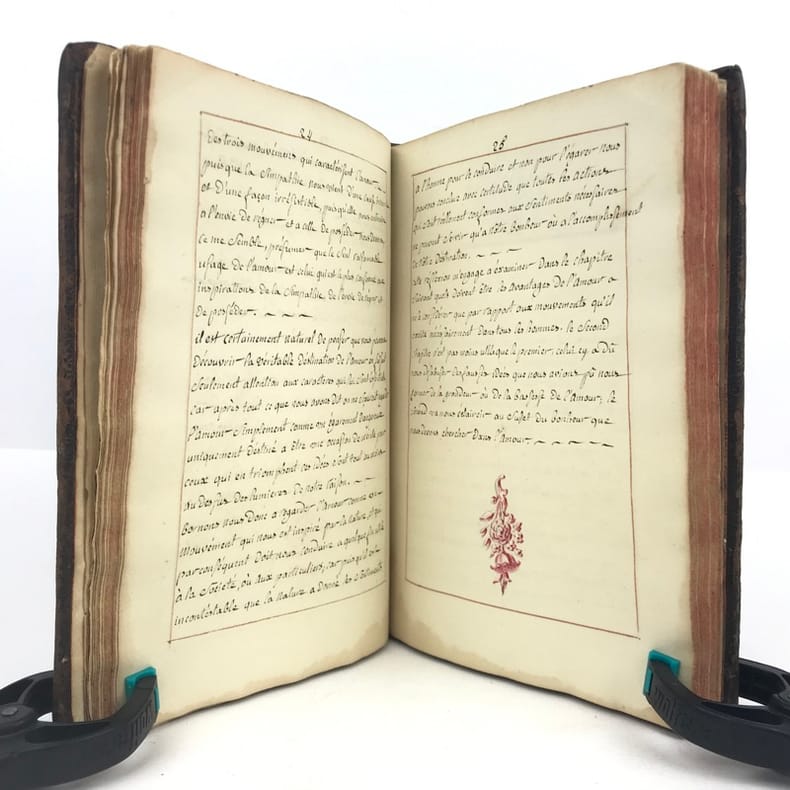 24
Des trois mouvémens qui caractérisent l'amour
puisque la Simpathie nous vient D'une
et D'une façon irrésistible, puisqu'elle
a l'envie de régner et a celle de posséder nous
ce me Semble, présumer que le Seul raisonnable
usage de l'amour est celui qui est le plus conforme aux
inspirations de la Simpathie, de l'envie de régner et
de posséder.
il est certainement naturel de penser que nous
Découvrir la véritable Destination de l'amour
Seulement attention aux caracteres qui lui sont
car après tout ce que nous avons Dit on ne
l'amour Simplement comme un égarement Dangereux
uniquement Destiné a être une occasion de
ceux qui en triomphent ces idées sont tout
au Dessus Des lumieres De notre raison.
Bornons nous Donc a regarder l'amour comme un
mouvement qui nous est inspiré par la nature, et qui
par conséquent Doit nous conduire a quelque
à la Société, où aux particuliers, car puisqu'il est
incontestable que la nature a Donné les Sentiments
25
a l'Homme pour le conduire et non pour l'égarer nous
pouvons conclure avec certitude que toutes les actions
qui sont conformes aux Sentiments nécessaires
ne peuvent Servir qu'a nôtre Bonheur où a l'accomplissement
De nôtre Destination.
réflexion m'engage a examiner Dans le chapitre
Suivant quels Doivent être les avantages De l'amour a
ne le considérer que par rapport aux mouvements qu'il
excite nécessairement Dans tous les hommes. le Second
Chapitre n'est pas moins utile que le premier, celui cy a Dû
nous désabuser des fausses idées que nous avions pû nous
former de la grandeur où de la Bassesse De l'amour; le
Second va nous éclaircir au Sujet Du Bonheur que
nous devons chercher Dans l'amour.